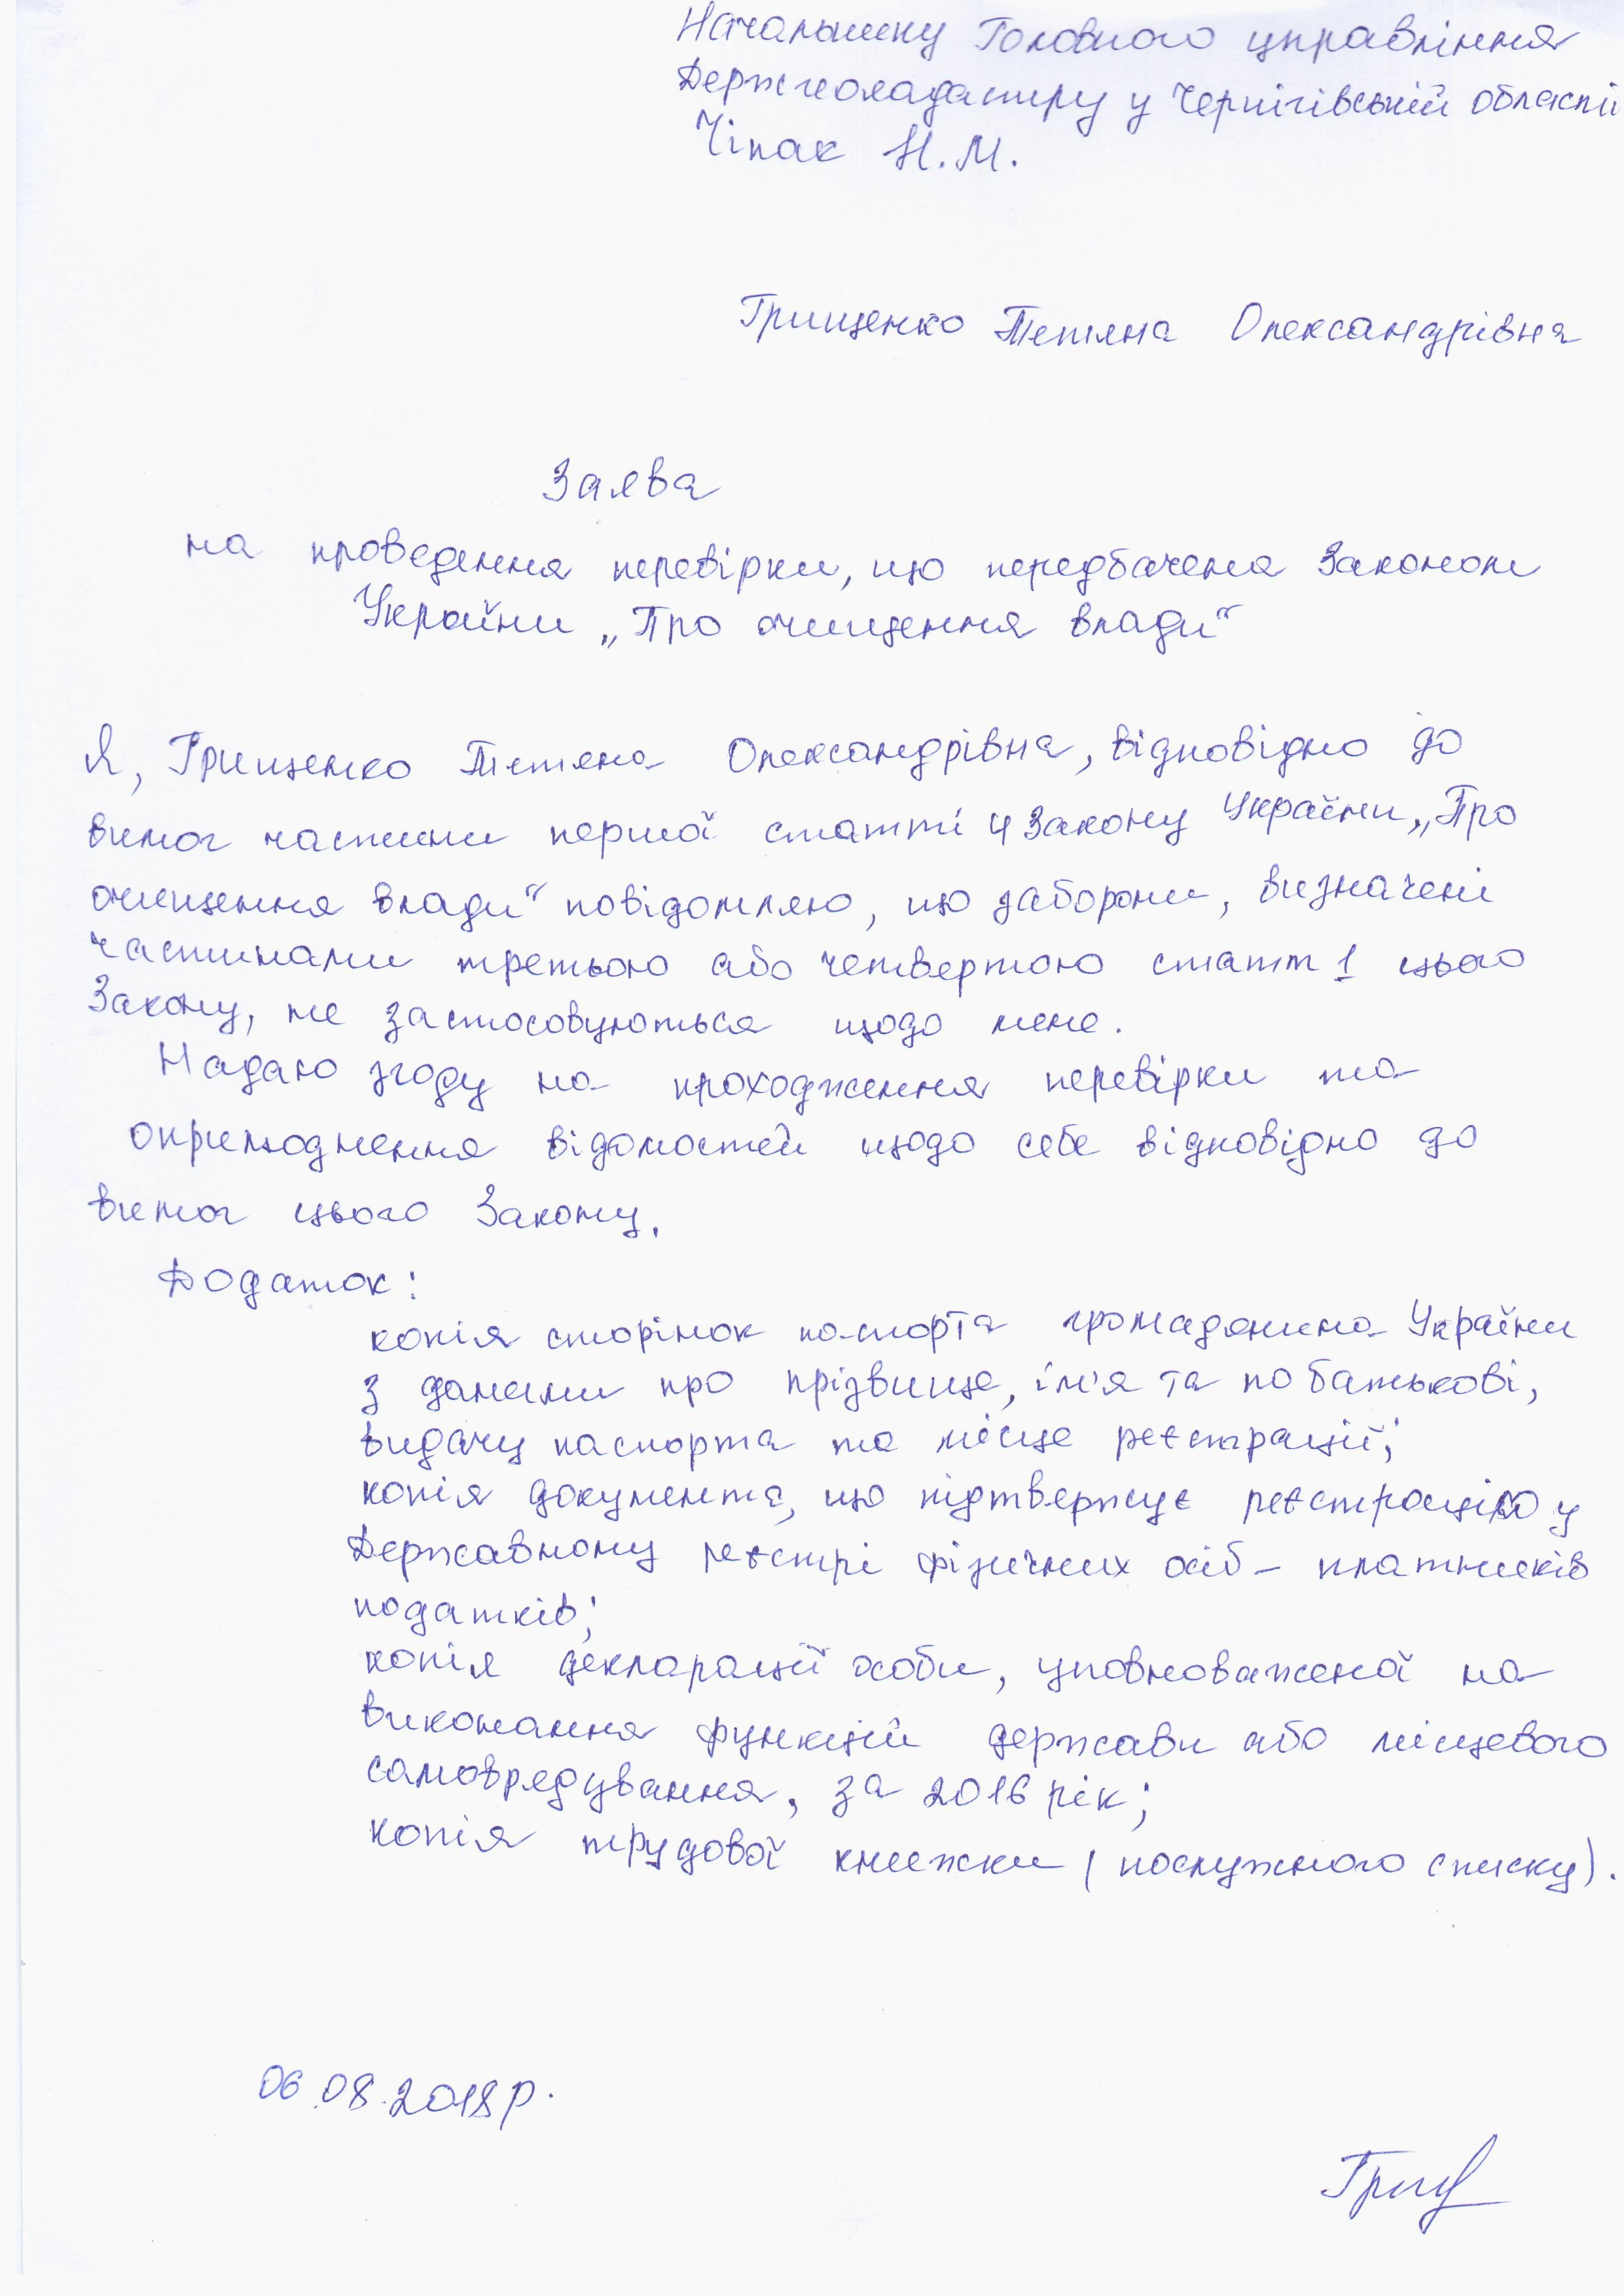 Начальнику Головного управління
Держгеокадастру у Чернігівській області
Чіпак Н.М.
Грищенко Тетяна Олександрівна
Заява
на проведення перевірки, що передбачена Законом
України „Про очищення влади“
Я, Грищенко Тетяна Олександрівна, відповідно до
вимог частини першої статті 4 Закону України „Про
очищення влади“ повідомляю, що заборони, визначені
частинами третьою або четвертою статті 1 цього
Закону, не застосовуються щодо мене.
Надаю згоду на проходження перевірки та
оприлюднення відомостей щодо себе відповідно до
вимог цього Закону.
Додаток:
копія сторінок паспорта громадянина України
з даними про прізвище, ім'я та по батькові,
видачу паспорта та місце реєстрації;
копія документа, що підтверджує реєстрацію у
Державному реєстрі фізичних осіб – платників
податків;
копія декларації особи, уповноваженої на
виконання функцій держави або місцевого
самоврядування, за 2016 рік;
копія трудової книжки (послужного списку).
06.08.2018р.